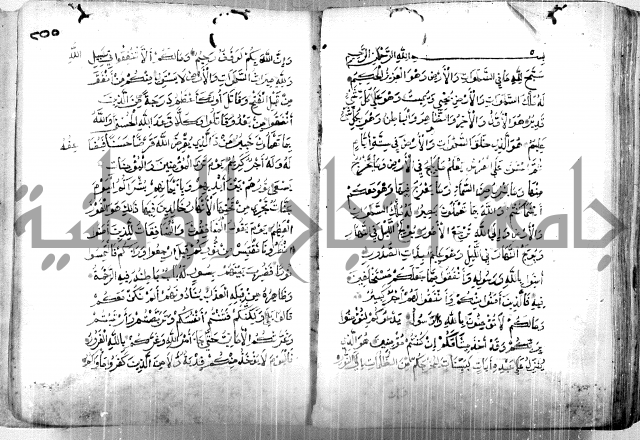 بسم الله الرحمن الرحيم
سبح لله ما في السموات والارض وهو العزيز الحكيم
له ملك السموات والارض يحيي ويميت وهو على كل شيء
قدير هو الاول والاخر والظاهر والباطن وهو بكل شيء
عليم هو الذي خلق السموات والارض في ستة ايام
ثم استوى على العرش يعلم ما يلج في الارض وما يخرج
منها وما ينزل من السماء وما يعرج فيها وهو معكم
اينما كنتم والله بما تعملون بصير له ملك السموات
والارض والى الله ترجع الامور يولج الليل في النهار
ويولج النهار في الليل وهو عليم بذات الصدور
امنوا بالله ورسوله وانفقوا مما جعلكم مستخلفين
فيه فالذين امنوا منكم وانفقوا لهم اجر كبير
وما لكم لا تؤمنون بالله والرسول يدعوكم لتؤمنوا
بربكم وقد اخذ ميثاقكم ان كنتم مؤمنين هو الذي
ينزل على عبده ايات بينات ليخرجكم من الظلمات الى النور
وان الله بكم لرؤف رحيم وما لكم الا تنفقوا في سبيل الله
ولله ميراث السموات والارض لا يستوي منكم من انفق
من قبل الفتح وقاتل اولئك اعظم درجة من الذين
انفقوا من بعد وقاتلوا وكلا وعد الله الحسنى والله
بما تعملون خبير من ذا الذي يقرض الله قرضا حسنا فيضاعفه
له وله اجر كريم يوم ترى المؤمنين والمؤمنات
يسعى نورهم بين ايديهم وبايمانهم بشراكم اليوم
جنات تجري من تحتها الانهار خالدين فيها ذلك هو الفوز
العظيم يوم يقول المنافقون والمنافقات للذين امنوا
انظرونا نقتبس من نوركم قيل ارجعوا وراءكم فالتمسوا
نورا فضرب بينهم بسور له باب باطنه فيه الرحمة
وظاهره من قبله العذاب ينادونهم الم نكن معكم
قالوا بلى ولكنكم فتنتم انفسكم وتربصتم وارتبتم
وغرتكم الاماني حتى جاء امر الله وغركم بالله الغرور
فاليوم لا يؤخذ منكم فدية ولا من الذين كفروا ماواكم
جامعة النجاح الوطنية